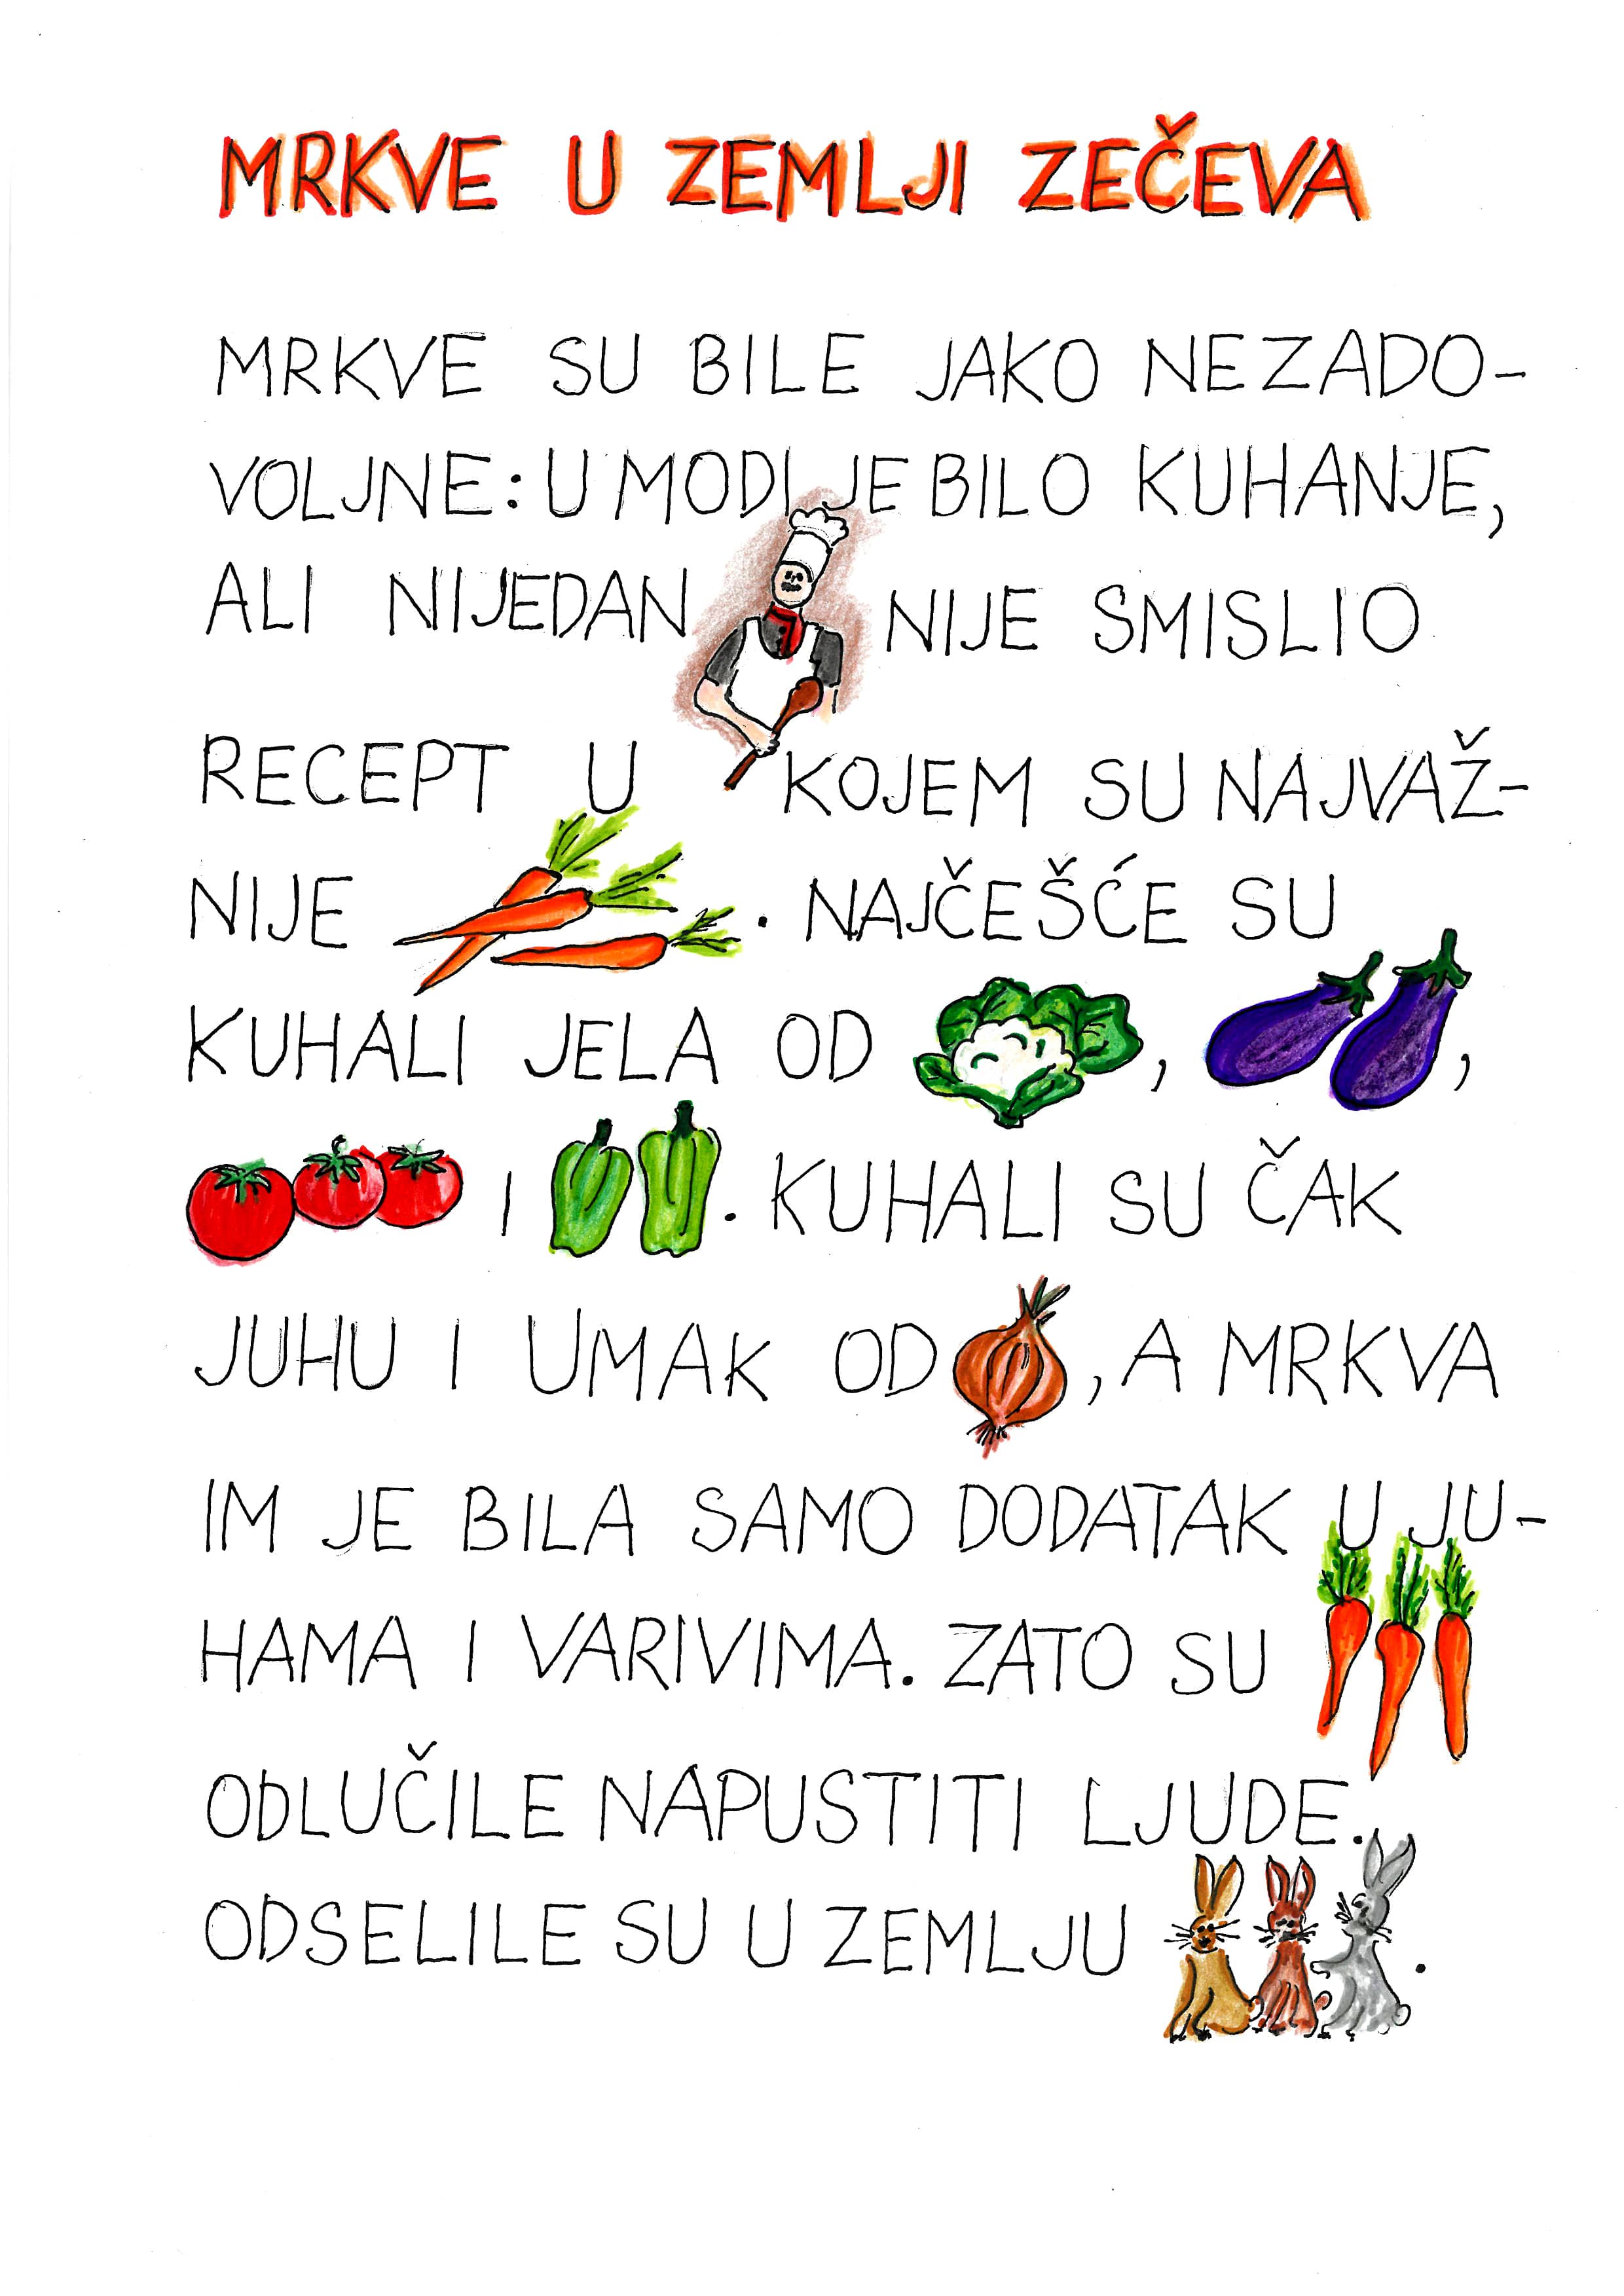 MRKVE U ZEMLJI ZEČEVA
MRKVE SU BILE JAKO NEZADO-
VOLJNE: U MODI JE BILO KUHANJE,
ALI NIJEDAN NIJE SMISLIO
RECEPT U KOJEM SU NAJVAŽ-
NIJE . NAJČEŠĆE SU
KUHALI JELA OD , ,
I . KUHALI SU ČAK
JUHU I UMAK OD , A MRKVA
IM JE BILA SAMO DODATAK U JU-
HAMA I VARIVIMA. ZATO SU
ODLUČILE NAPUSTITI LJUDE.
ODSELILE SU U ZEMLJU .